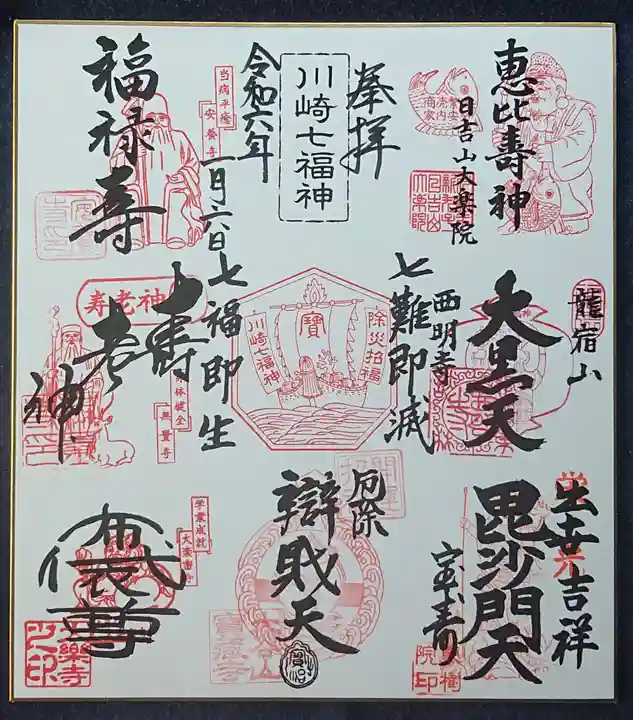 恵比壽神
日吉山大楽院
繁安
売内
商家
奉拝
川崎七福神
令和六年
一月六日
当病平癒
安養寺
福禄寿
龍宿山
大黒天
西明寺
七難即滅
除災招福
寶
川崎七福神
七福即生
寿老神
寿老神
体健全
無量寺
出世吉祥
毘沙門天
厄除
辯財天
学業成就
大楽寺
布袋尊